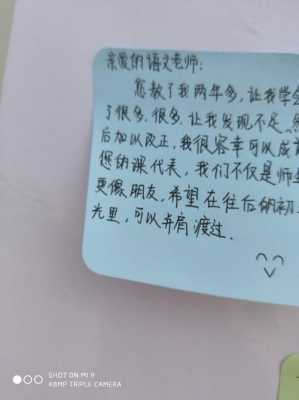 亲爱的语文老师:
您教了我两年多,让我学会
了很多,很多,让我发现不足,然
后加以改正,我很容幸可以成
您的课代表,我们不仅是师
更像朋友,希望在往后的初
光里,可以并肩渡过.
SHOT ON MI 9
48MP TRIPLE CAMERA